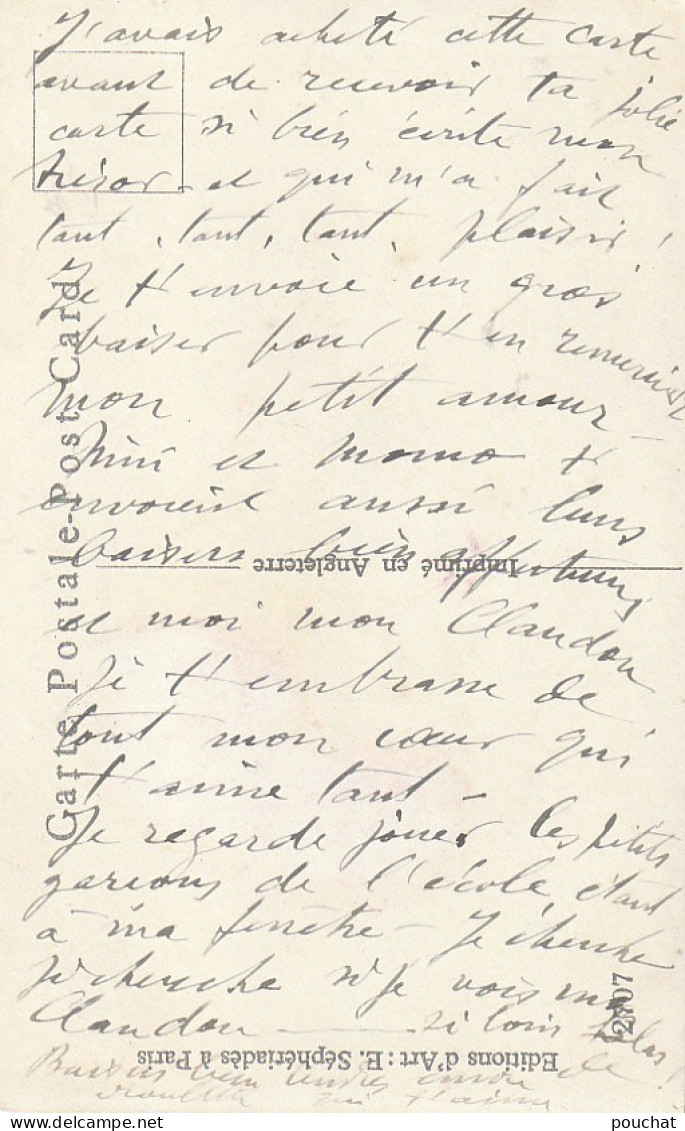 J'avais acheté cette carte
avant de recevoir ta jolie
carte si bien écrite mon
trésor - et qui m'a fait
tant, tant, tant, plaisir !
Je t'envoie un gros
baiser pour t'en remercier
mon petit amour -
Mimi et Momo t'
envoient aussi leurs
baisers bien affectueux
et moi mon Claudon
je t'embrasse de
tout mon cœur qui
t'aime tant -
Je regarde jouer les petits
garçons de l'école, étant
à ma fenêtre - Je cherche
je cherche si je vois mon
Claudon — si loin hélas !
Baisers bien tendres encore de
qui t'aime
Carte Postale-Post Card
Imprimé en Angleterre
Editions d'Art : E. Séphériadès à Paris
pouchat